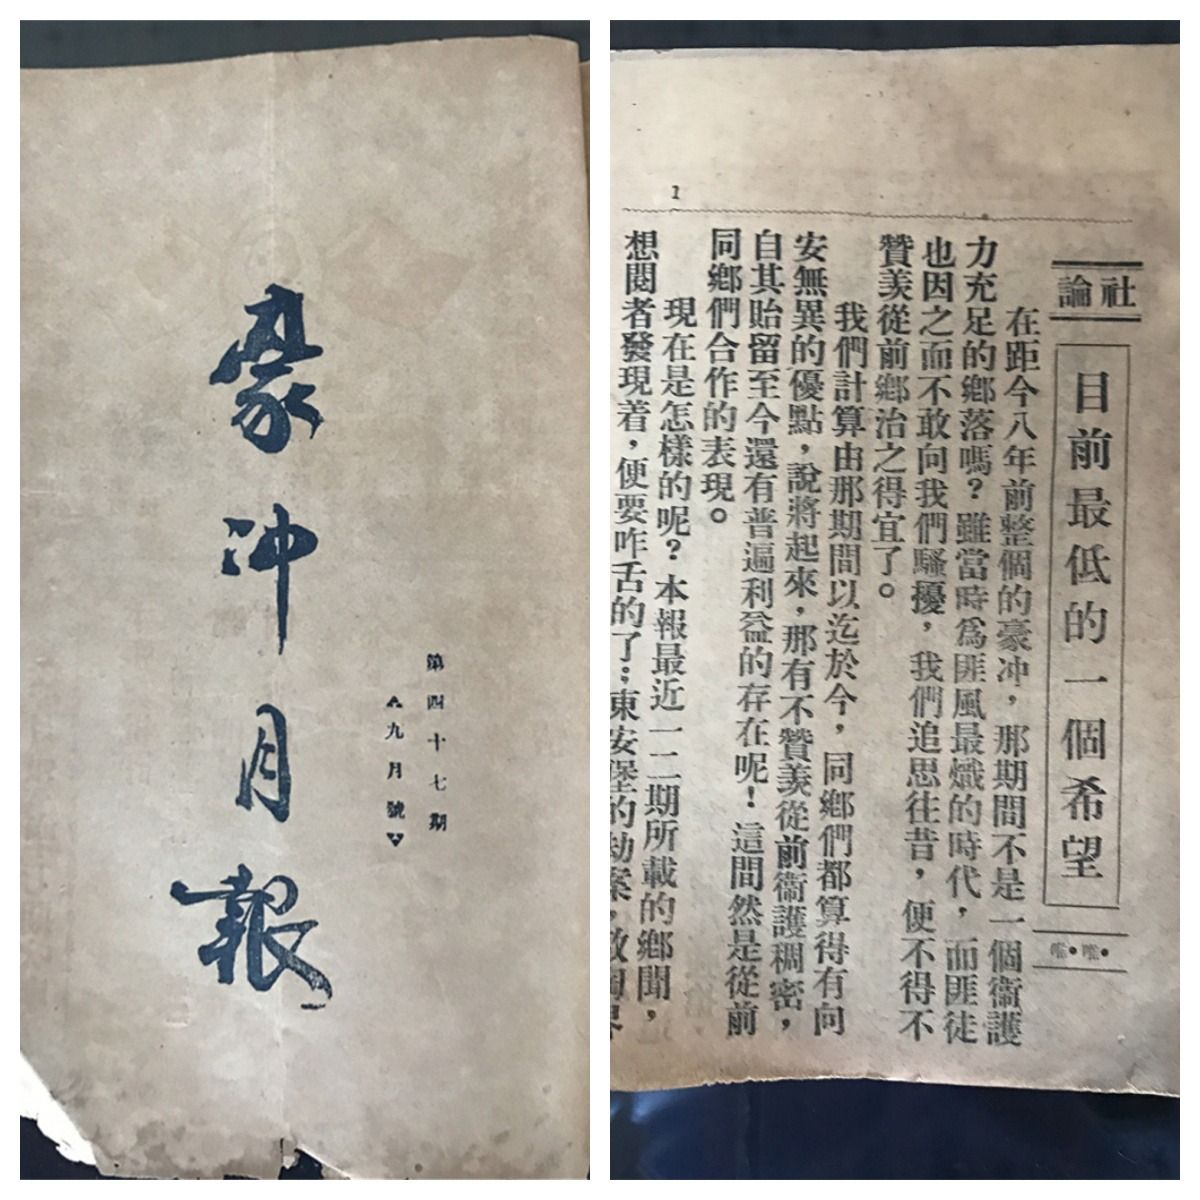 豪冲月報
第四十七期
九月號
1
社論
目前最低的一個希望
在距今八年前整個的豪冲，那期間不是一個衞護
力充足的鄉落嗎？雖當時爲匪風最熾的時代，而匪徒
也因之而不敢向我們騷擾，我們追思往昔，便不得不
贊羨從前鄉治之得宜了。
我們計算由那期間以迄於今，同鄉們都算得有向
安無異的優點，說將起來，那有不贊羨從前衞護稠密，
自其貽留至今還有普遍利益的存在呢！這間然是從前
同鄉們合作的表現。
現在是怎樣的呢？本報最近一二期所載的鄉聞，
想閱者發現着，便要咋舌的了；東安堡的劫案，